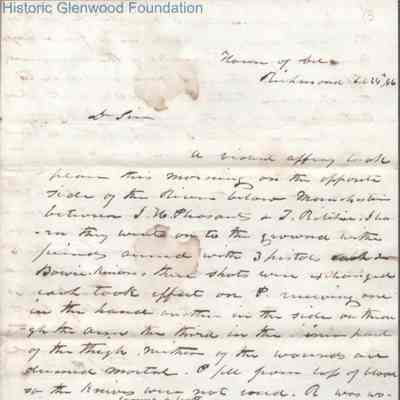 Historic Glenwood Foundation
13
House of Del
Richmond Feb 25th, 46
Dr Sir
A ... affray took
place this morning on the opposite
side of the River below Manchester
between J. H. Pleasants & T. Ritchie, Jr
they went on to the ground with
friends armed with 3 pistols each &
Bowie knives, three shots were exchanged
each took effect on P. receiving one
in the hand another in the side or throu
gh the arm the third in the part
of the thigh. of the wounds are
deemed mortal. P fell from loss of blood
so the Knives were not used. R was